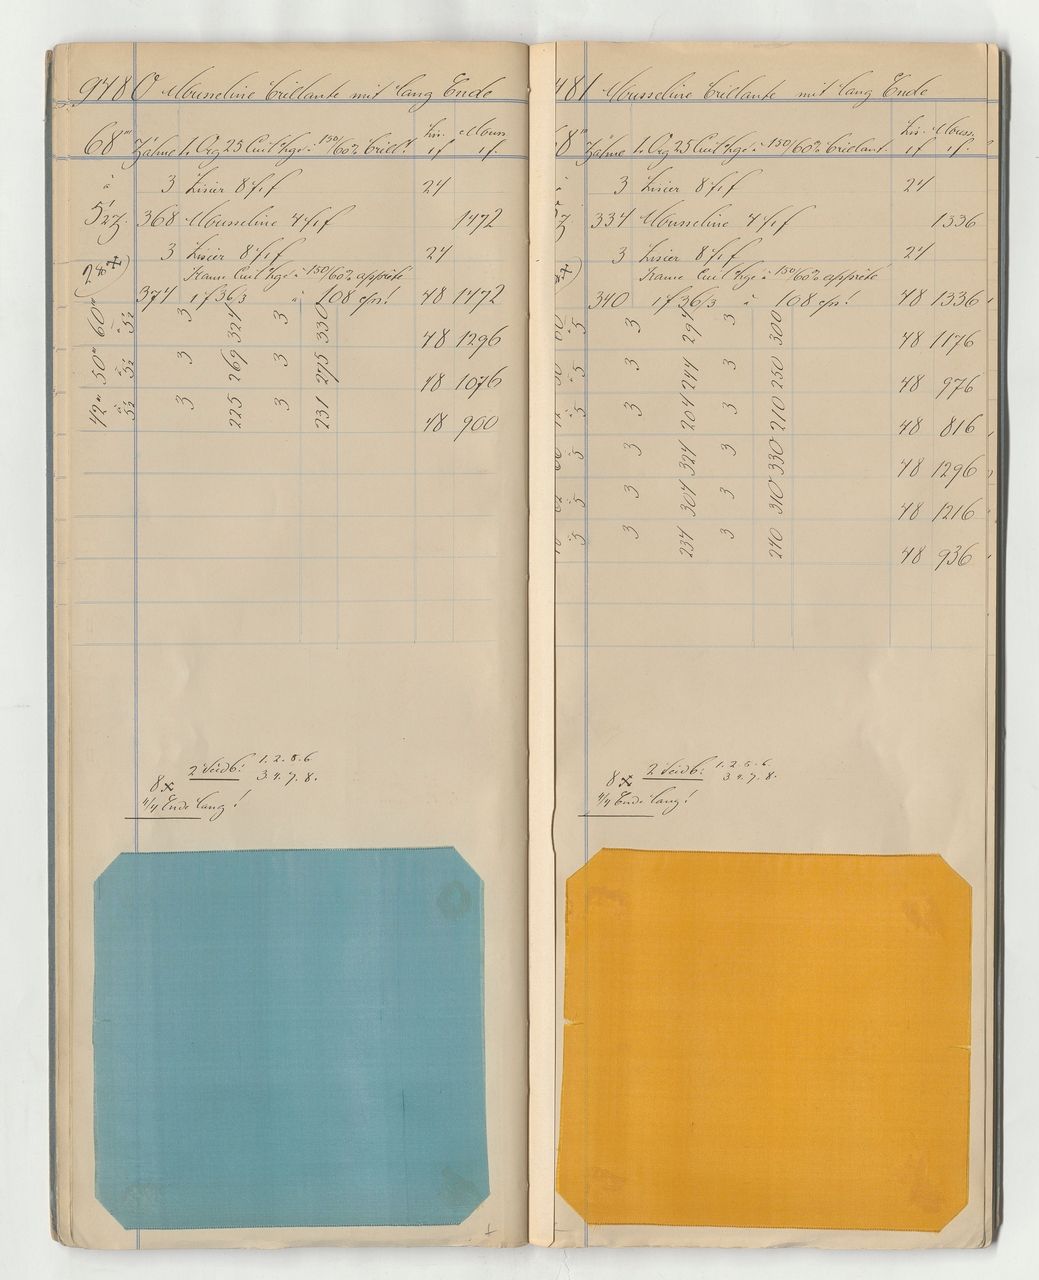 9480 Mousseline brillante mit lang Ende
Lis. Mouss.
68''' Zähne 1. Org 23 Cuit 2/ge à 150/60% brill. 1f 1f.
à 3 Lisier 8f 1f 24
5½ Z. 368 Mousseline 4f 1f 1472
3 Lisier 8f 1f 24
Trame Cuit 2/ge à 150/60% apprête
374 1f 36/3 à 108 cps! 48 1472
60''' à 5½ 3 324 3 330 48 1296
50''' à 5½ 3 269 3 275 48 1076
42''' à 5½ 3 225 3 231 48 900
2 Seidb: 1. 2. 5. 6
3. 4. 7. 8.
8x
4/4 Ende lang!
481 Mousseline brillante mit lang Ende
Lis. Mouss.
8''' Zähne 1. Org 23 Cuit 2/ge à 150/60% brillant. 1f 1f.
3 Lisier 8f 1f 24
Z. 334 Mousseline 4f 1f 1336
3 Lisier 8f 1f 24
Trame Cuit 2/ge à 150/60% apprête
340 1f 36/3 à 108 cps! 48 1336
5 3 294 3 300 48 1176
5 3 244 3 250 48 976
5 3 204 3 210 48 816
5 3 324 3 330 48 1296
5 3 304 3 310 48 1216
5 3 234 3 240 48 936
2 Seidb: 1. 2. 5. 6.
3. 4. 7. 8.
8x
4/4 Ende lang!